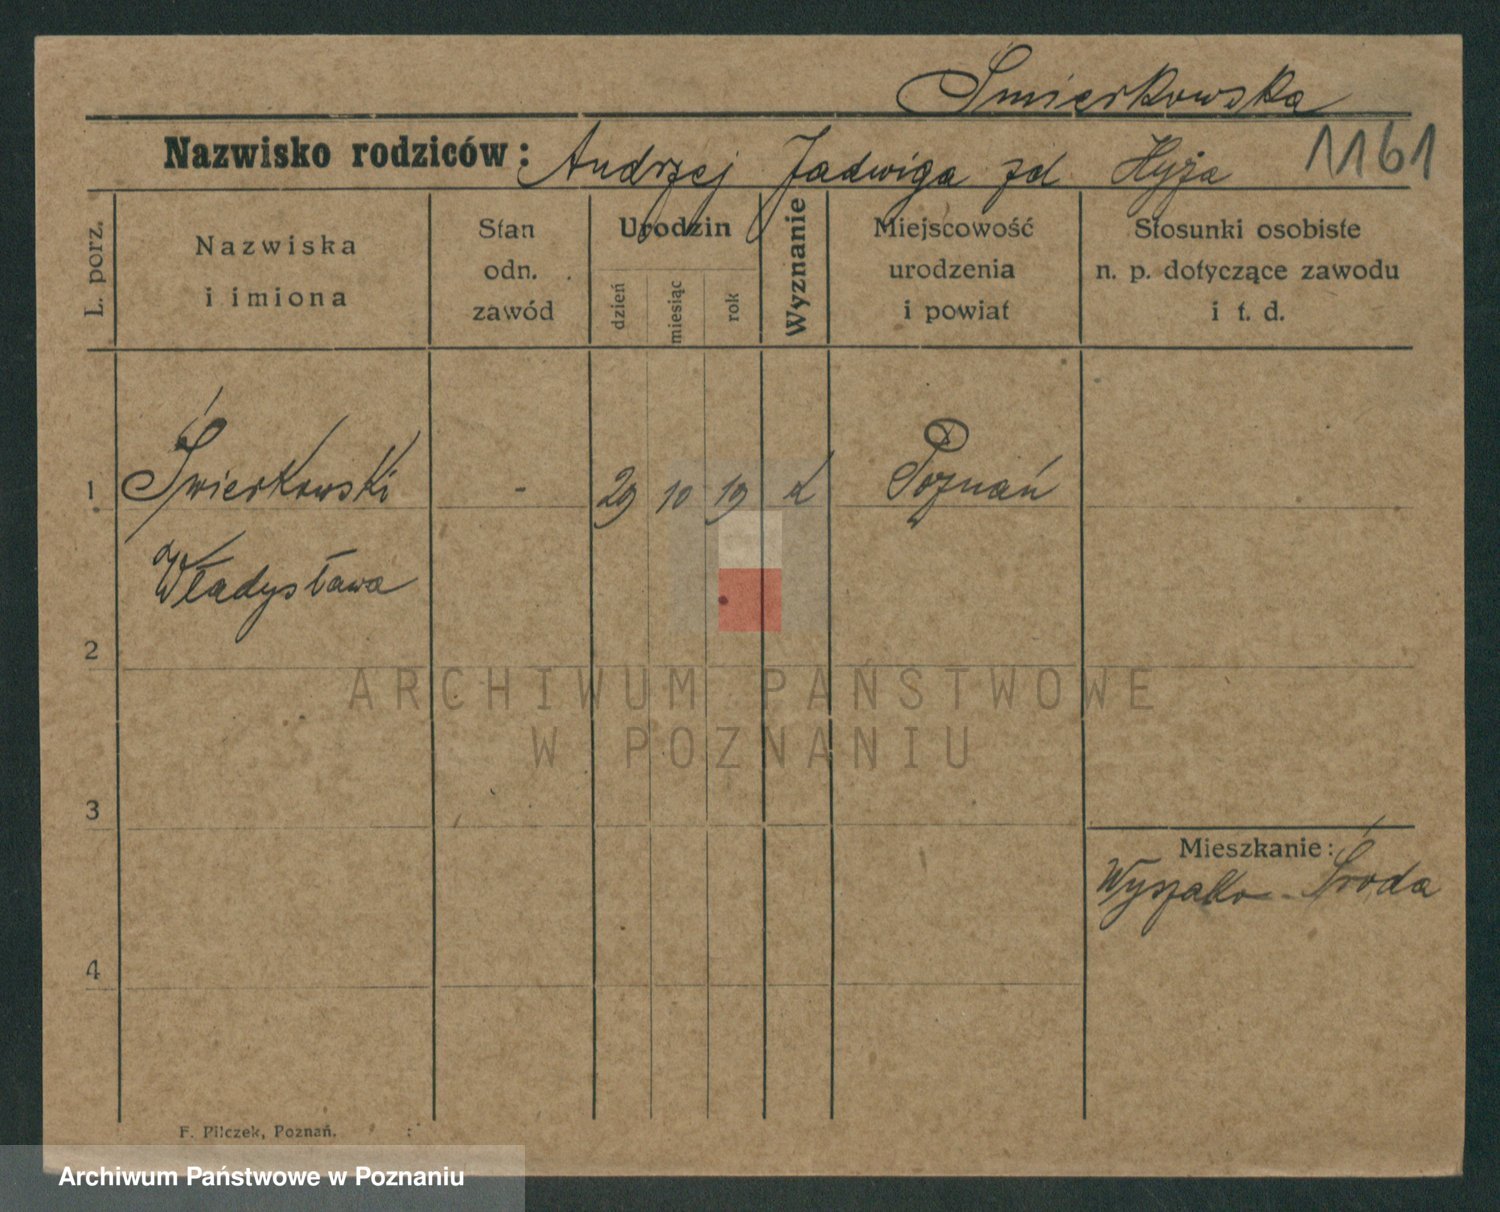 Smierkowska
Nazwisko rodziców: Andrzej Jadwiga zd Hyża
1161
L. porz.
Nazwiska
i imiona
Stan
odn.
zawód
Urodzin
dzień
miesiąc
rok
Wyznanie
Miejscowość
urodzenia
i powiat
Stosunki osobiste
n. p. dotyczące zawodu
i t. d.
1 Świerkowski - 29 10 19 Poznań
Władysława
2
ARCHIWUM PAŃSTWOWE
W POZNANIU
3
Mieszkanie:
Środa
4
F. Pilczek, Poznań.
Archiwum Państwowe w Poznaniu